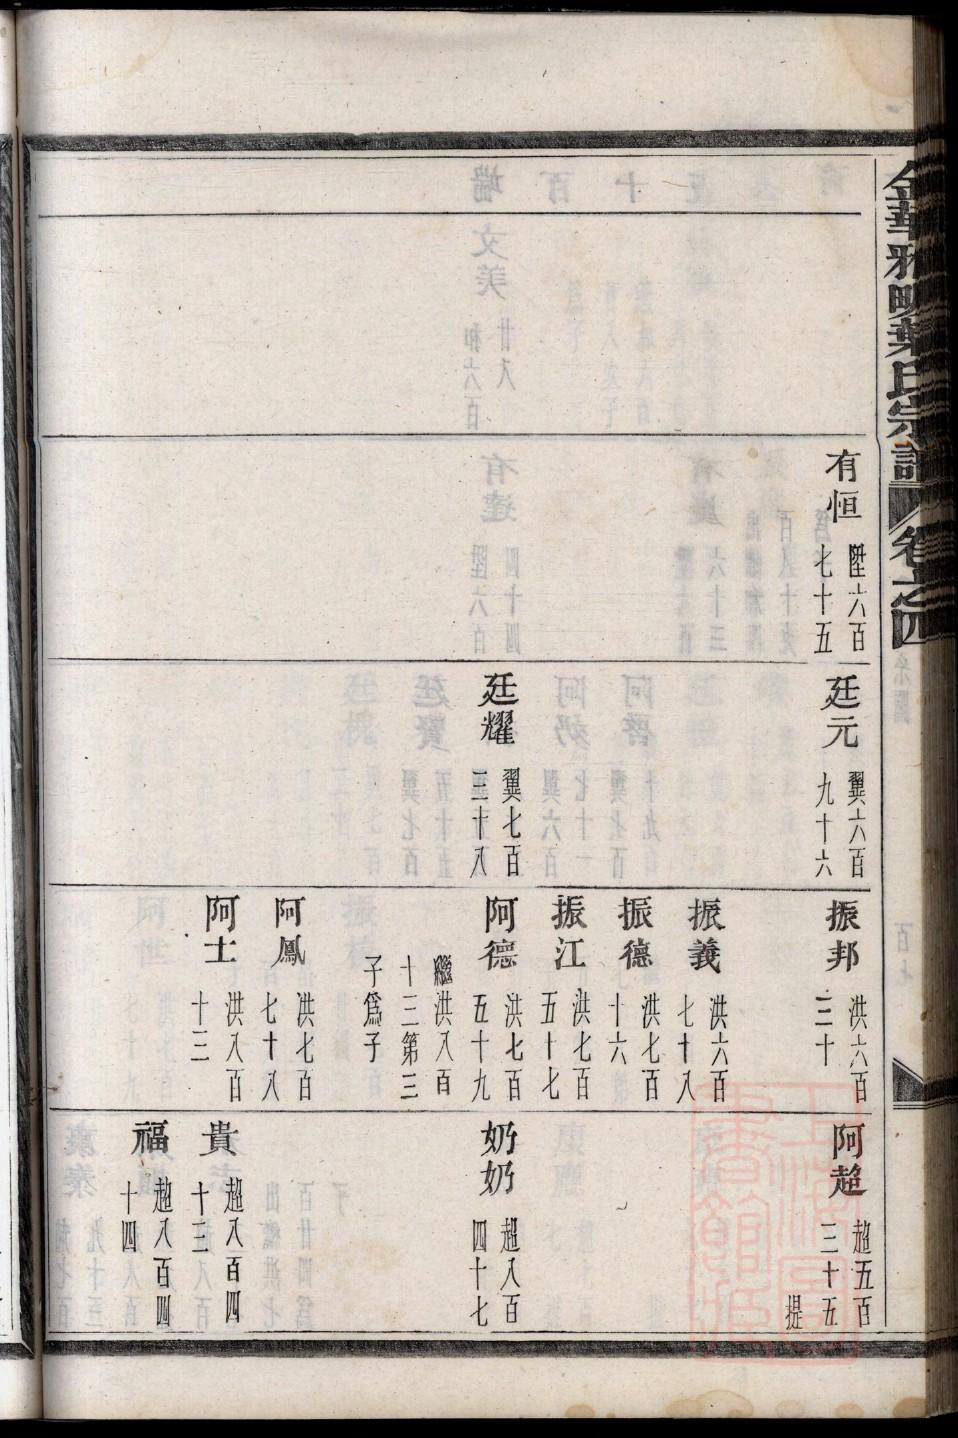 金華雅畈葉氏宗譜 卷之四
有恒 陞六百七十五
廷元 翼六百九十六
廷耀 翼七百三十八
振邦 洪六百三十
振義 洪六百七十八
振德 洪七百十六
振江 洪七百五十七
阿德 洪七百五十九
繼洪八百十三第三子為子
阿鳳 洪七百七十八
阿土 洪八百十三
阿趂 趂五百三十五
提
奶奶 趂八百四十七
貴 趂八百四十三
福 趂八百四十四